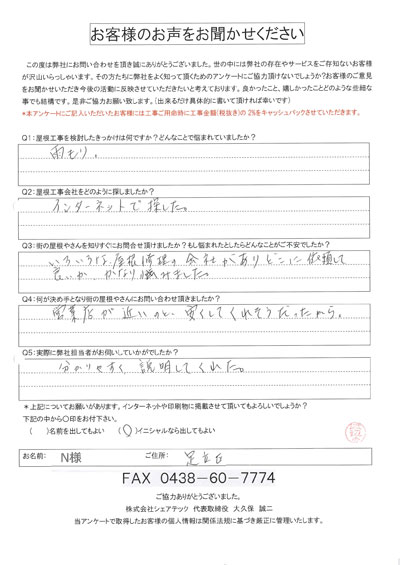 お客様のお声をお聞かせください
この度は弊社にお問い合わせを頂き誠にありがとうございました。世の中には弊社の存在やサービスをご存知ないお客様
が沢山いらっしゃいます。その方たちに弊社をよく知って頂くためのアンケートにご協力頂けないでしょうか?お客様のご意見
をお聞かせいただき今後の活動に反映させていただきたいと考えております。良かったことと、嬉しかったことどのような些細な
事でも結構です。是非ご協力お願い致します。(出来るだけ具体的に書いて頂ければ幸いです)
*本アンケートにご記入いただいたお客様には工事ご用命時に工事金額(税抜き)の2%をキャッシュバックさせていただきます。
Q1:屋根工事を検討したきっかけは何ですか?どんなことで悩まれていましたか?
雨もり。
Q2:屋根工事会社をどのように探しましたか?
インターネットで探した。
Q3:街の屋根やさんを知りすぐにお問合せ頂けましたか?もし悩まれたとしたらどんなことがご不安でしたか?
いろいろな屋根修理の会社がありどこに依頼して
良いか かなり悩みました。
Q4:何が決め手となり街の屋根やさんにお問い合わせ頂きましたか?
営業店が近いのと、安くしてくれそうだったから。
Q5:実際に弊社担当者がお伺いしていかがでしたか?
分かりやすく説明してくれた。
*上記についてお願いがあります。インターネットや印刷物に掲載させて頂いてもよろしいでしょうか?
下記の中から〇印をお付下さい。
( )名前を出してもよい (〇)イニシャルなら出してもよい
お名前: N様 ご住所: 足立区
FAX 0438-60-7774
ご協力ありがとうございました。
株式会社シェアテック 代表取締役 大久保 誠二
当アンケートで取得したお客様の個人情報は関係法規に基づき厳正に管理いたします。